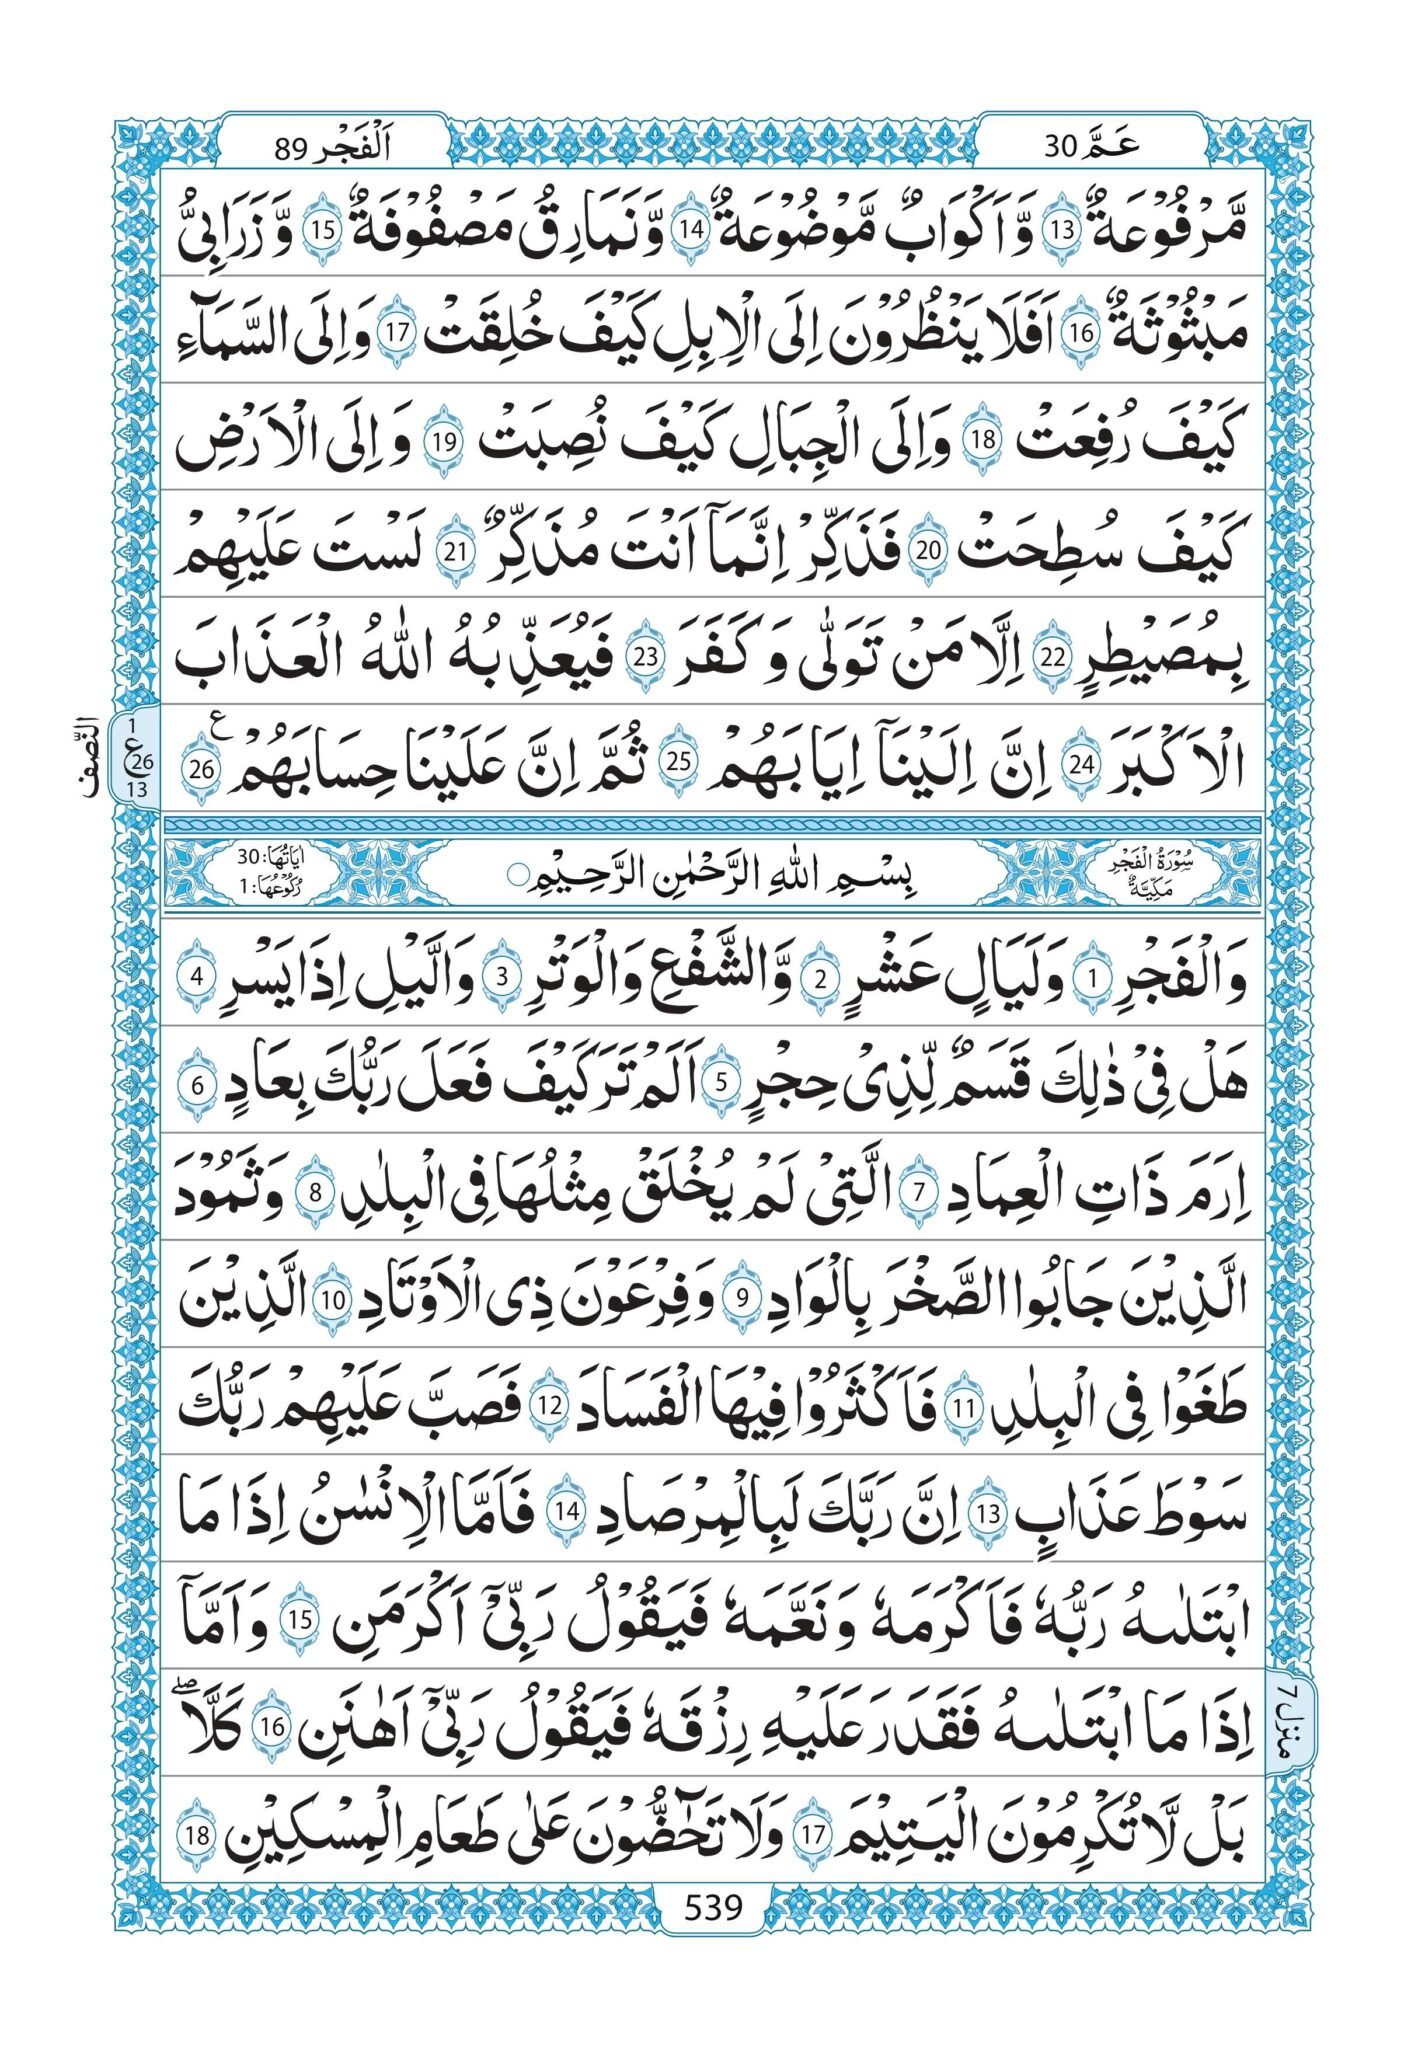 عَمَّ 30
اَلْفَجْر 89
مَّرْفُوْعَةٌ ۙ 13 وَّ اَكْوَابٌ مَّوْضُوْعَةٌ ۙ 14 وَّ نَمَارِقُ مَصْفُوْفَةٌ ۙ 15 وَّ زَرَابِیُّ
مَبْثُوْثَةٌ ؕ 16 اَفَلَا یَنْظُرُوْنَ اِلَى الْاِبِلِ كَیْفَ خُلِقَتْ 17 وَ اِلَى السَّمَآءِ
كَیْفَ رُفِعَتْ 18 وَ اِلَى الْجِبَالِ كَیْفَ نُصِبَتْ 19 وَ اِلَى الْاَرْضِ
كَیْفَ سُطِحَتْ 20 فَذَكِّرْ اِنَّمَاۤ اَنْتَ مُذَكِّرٌ ؕ 21 لَسْتَ عَلَیْهِمْ
بِمُصَیْطِرٍ 22 اِلَّا مَنْ تَوَلّٰى وَ كَفَرَ 23 فَیُعَذِّبُهُ اللّٰهُ الْعَذَابَ
الْاَكْبَرَ 24 اِنَّ اِلَیْنَاۤ اِیَابَهُمْ 25 ثُمَّ اِنَّ عَلَیْنَا حِسَابَهُمْ 26 ع
النّصف
1
ع 26
13
سُوْرَةُ الْفَجْرِ
مَكِّیَّةٌ
بِسْمِ اللّٰهِ الرَّحْمٰنِ الرَّحِیْمِ
اٰیَاتُهَا: 30
رُكُوْعُهَا: 1
وَ الْفَجْرِ 1 وَ لَیَالٍ عَشْرٍ 2 وَّ الشَّفْعِ وَ الْوَتْرِ 3 وَ الَّیْلِ اِذَا یَسْرِ 4
هَلْ فِیْ ذٰلِكَ قَسَمٌ لِّذِیْ حِجْرٍ 5 اَلَمْ تَرَ كَیْفَ فَعَلَ رَبُّكَ بِعَادٍ 6
اِرَمَ ذَاتِ الْعِمَادِ 7 الَّتِیْ لَمْ یُخْلَقْ مِثْلُهَا فِی الْبِلٰدِ 8 وَ ثَمُوْدَ
الَّذِیْنَ جَابُوا الصَّخْرَ بِالْوَادِ 9 وَ فِرْعَوْنَ ذِی الْاَوْتَادِ 10 الَّذِیْنَ
طَغَوْا فِی الْبِلٰدِ 11 فَاَكْثَرُوْا فِیْهَا الْفَسَادَ 12 فَصَبَّ عَلَیْهِمْ رَبُّكَ
سَوْطَ عَذَابٍ 13 اِنَّ رَبَّكَ لَبِالْمِرْصَادِ 14 فَاَمَّا الْاِنْسٰنُ اِذَا مَا
ابْتَلٰىهُ رَبُّهٗ فَاَكْرَمَهٗ وَ نَعَّمَهٗ فَیَقُوْلُ رَبِّیْۤ اَكْرَمَنِ 15 وَ اَمَّاۤ
اِذَا مَا ابْتَلٰىهُ فَقَدَرَ عَلَیْهِ رِزْقَهٗ فَیَقُوْلُ رَبِّیْۤ اَهٰنَنِ 16 كَلَّا ۖ
بَلْ لَّا تُكْرِمُوْنَ الْیَتِیْمَ 17 وَ لَا تَحٰٓضُّوْنَ عَلٰى طَعَامِ الْمِسْكِیْنِ 18
منزل 7
539